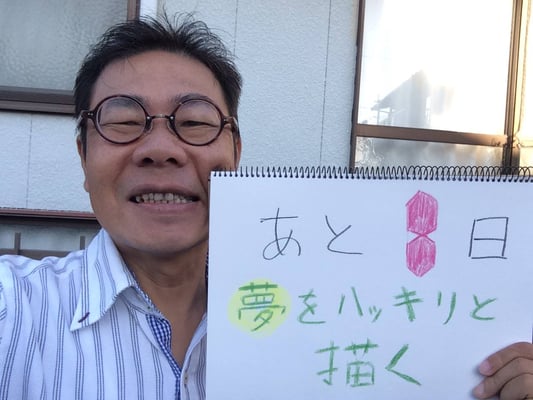 あと8日
夢をハッキリと
描く